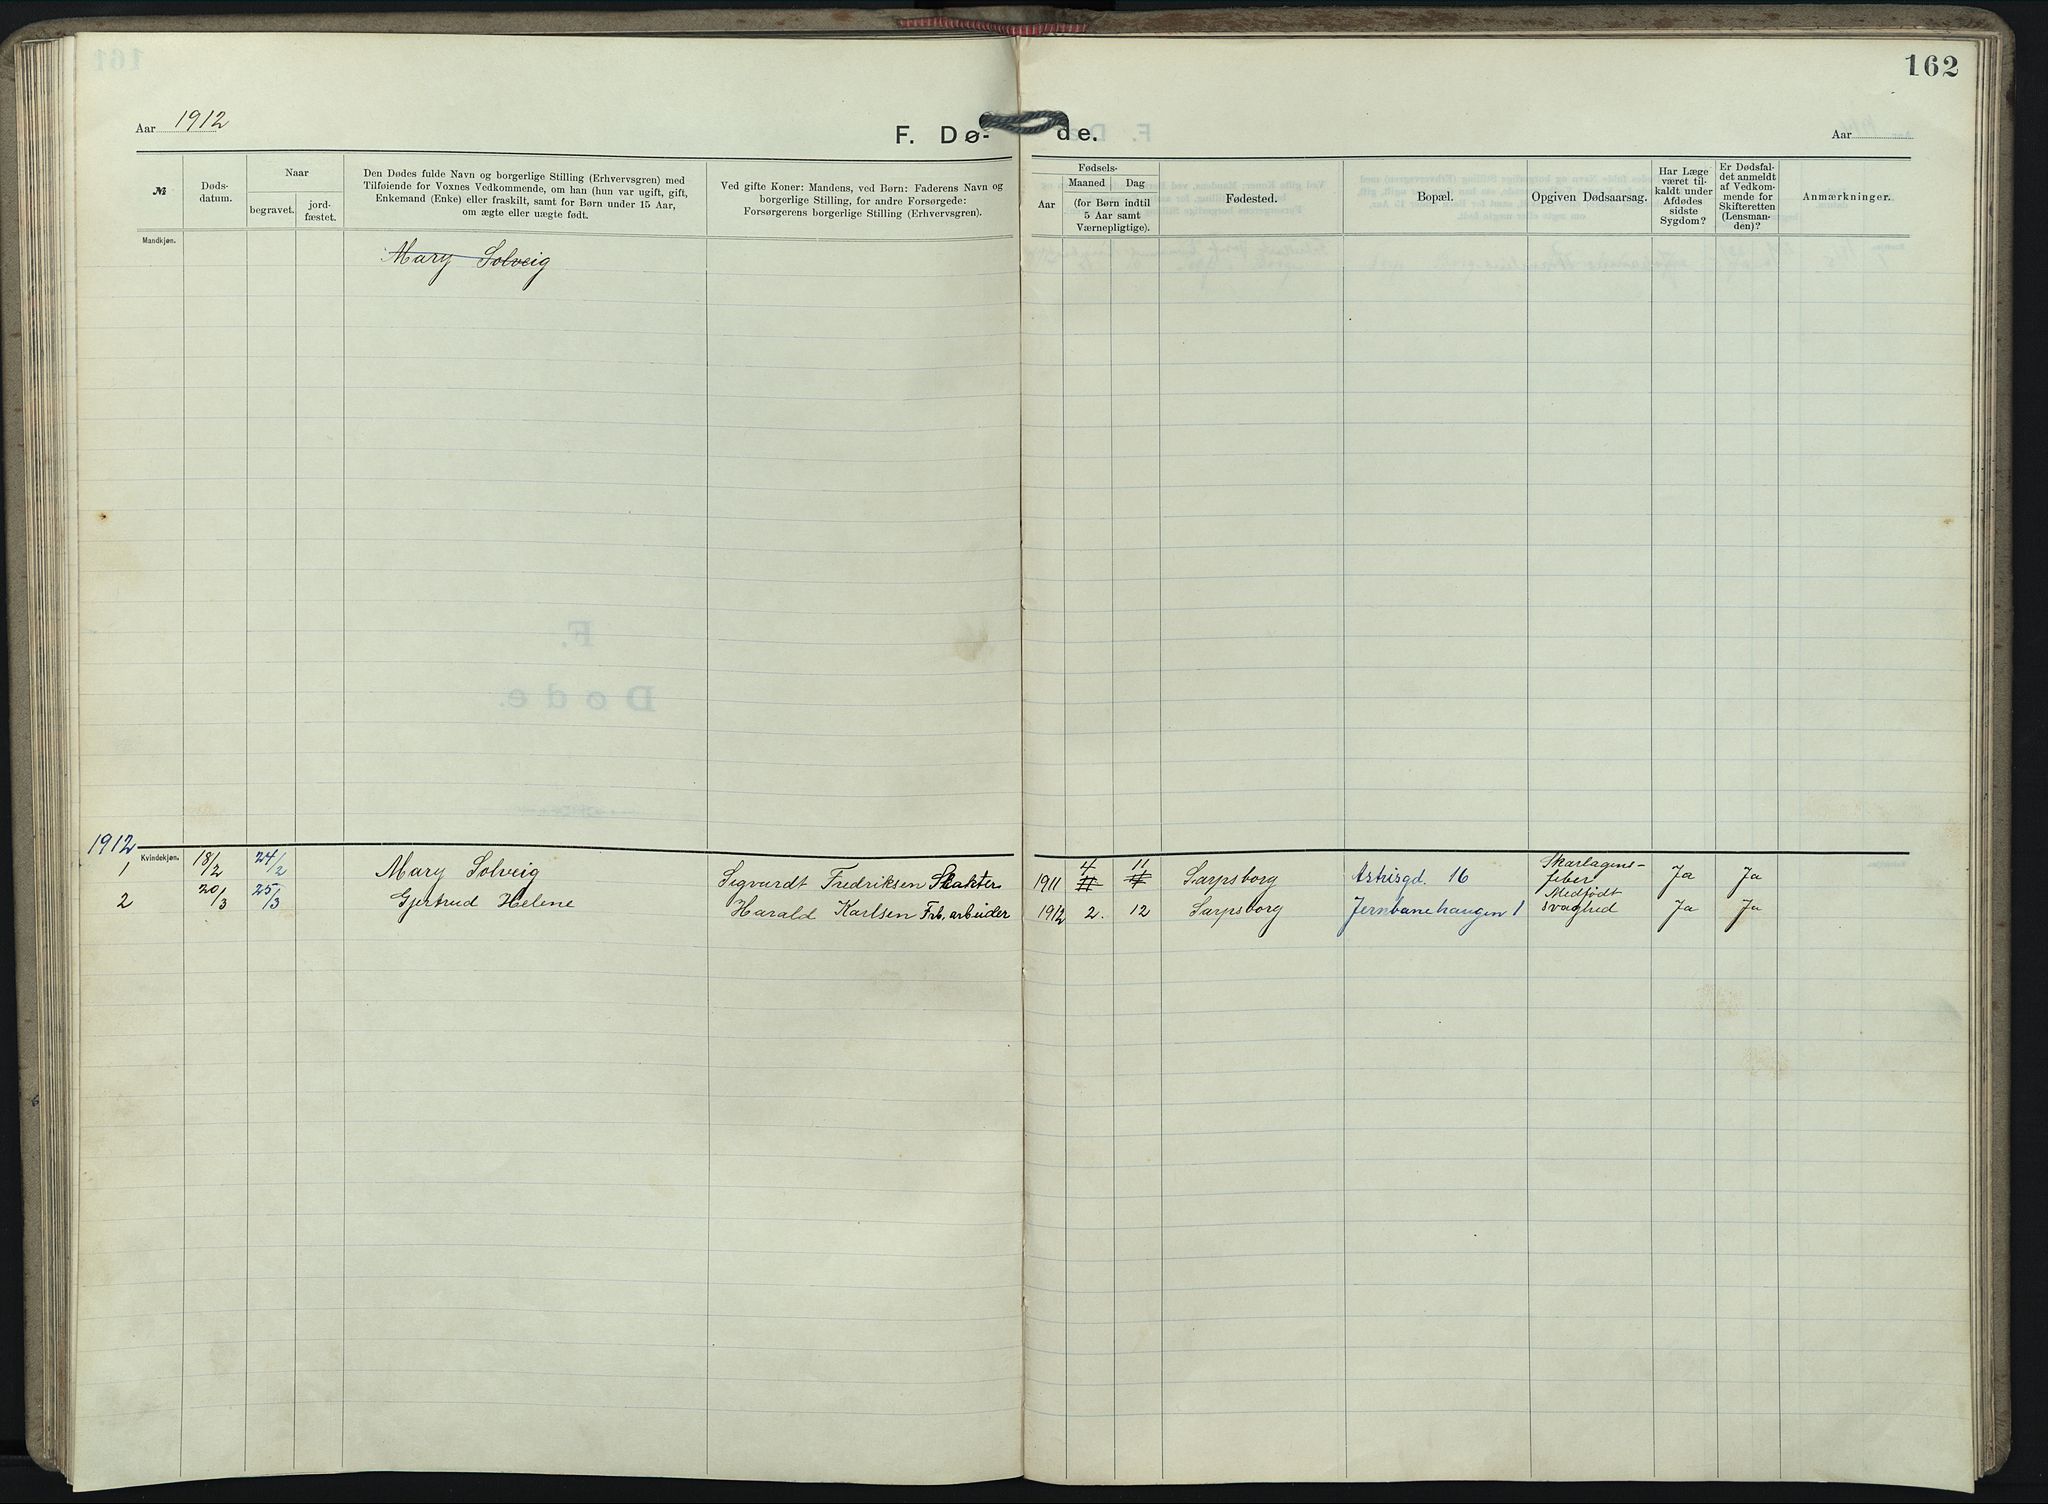 162
Aar 1912
F. Døde.
Aar
№
Døds-
datum.
Naar
begravet.
jord-
fæstet.
Den Dødes fulde Navn og borgerlige Stilling (Erhvervsgren) med
Tilføiende for Voxnes Vedkommende, om han (hun var ugift, gift,
Enkemand (Enke) eller fraskilt, samt for Børn under 15 Aar,
om ægte eller uægte født.
Ved gifte Koner: Mandens, ved Børn: Faderens Navn og
borgerlige Stilling, for andre Forsørgede:
Forsørgerens borgerlige Stilling (Erhvervsgren).
Fødsels-
Aar
Maaned
Dag
(for Børn indtil
5 Aar samt
Værnepligtige).
Fødested.
Bopæl.
Opgiven Dødsaarsag.
Har Læge
været til-
kaldt under
Afdødes
sidste
Sygdom?
Er Dødsfal-
det anmeldt
af Vedkom-
mende for
Skifteretten
(Lensman-
den)?
Anmærkninger.
Mandkjøn.
Mary Solveig
1912
Kvindekjøn.
1 18/2 24/2 Mary Solveig Sigvardt Fredriksen 1911 4 11 Sarpsborg Astrisgd. 16 Skarlagens-
feber Ja Ja
2 20/3 25/3 Gjertrud Helene Harald Karlsen Frb. arbeider 1912 2. 12 Sarpsborg Jernbanehaugen 1 Medfødt
svaghed Ja Ja